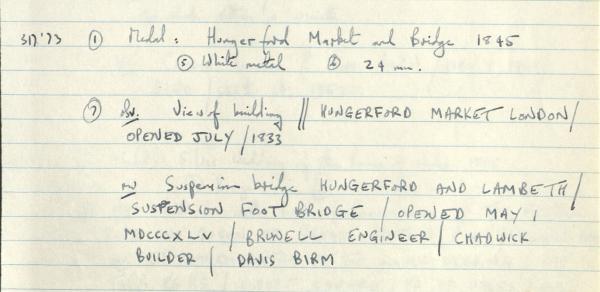 317'73 ① Medal: Hungerford Market and Bridge 1845
⑤ White metal ⑥ 24 mm.
⑦ obv. View of building || HUNGERFORD MARKET LONDON /
OPENED JULY / 1833
rev Suspension bridge HUNGERFORD AND LAMBETH /
SUSPENSION FOOT BRIDGE / OPENED MAY 1
MDCCCXLV / BRUNELL ENGINEER / CHADWICK
BUILDER / DAVIS BIRM